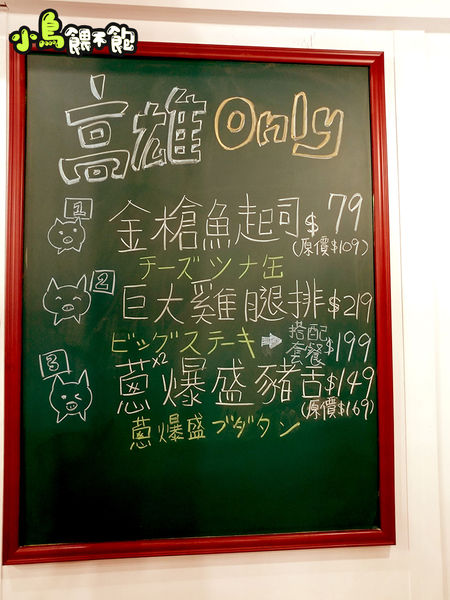 小鳥餵不飽
高雄 Only
1 金槍魚起司 $79
(原價$109)
チーズツナ缶
2 巨大雞腿排 $219
ビッグステーキ 搭配套餐 $199
3 蔥x2爆盛豬舌 $149
(原價$169)
蔥爆盛ブダタン